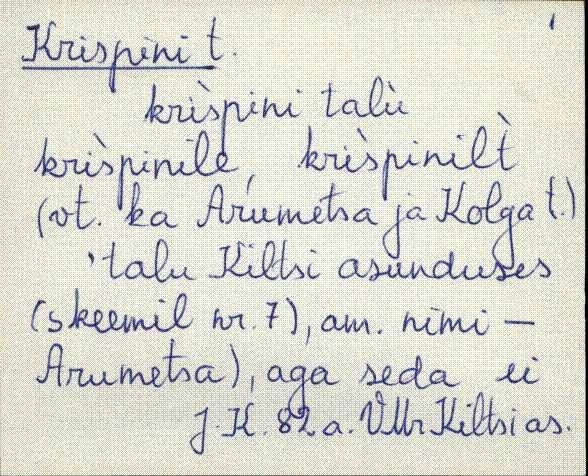 1
Krispini t.
krìspini talù
krìspinile, krìspinilt̀
(vt. ka Arumetsa ja Kolga t.)
'talu Kiltsi asunduses
(skeemil nr. 7), am. nimi –
Arumetsa), aga seda ei
J.K. 82 a. VMr Kiltsi as.